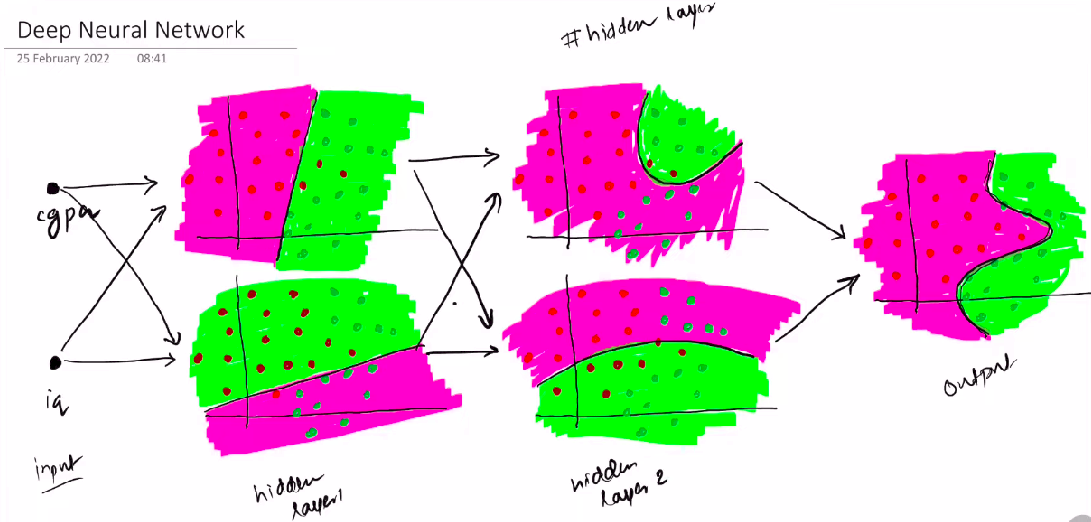 Deep Neural Network
25 February 2022 08:41
#hidden layer
cgpa
iq
input
hidden
layer1
hidden
layer 2
output